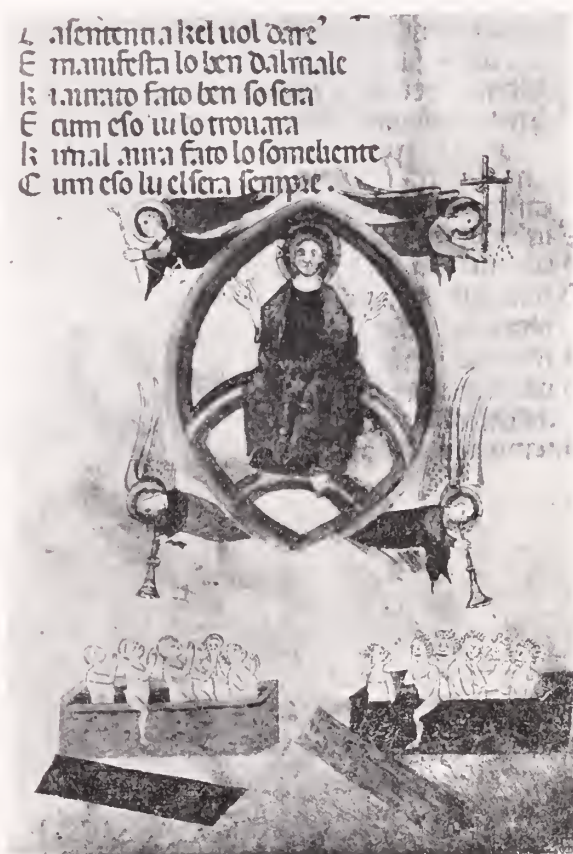 L asententia kel uol dare
E manifesta lo ben dal male
K i aurato fato ben so sera
E cum eso iu lo trouara
K i mal aura fato lo someliente
C um eso lu el sera sempre .